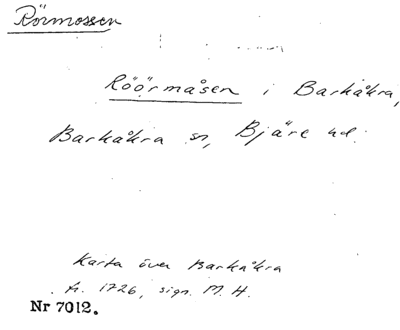 Rörmossen
Röörmåsen i Barkåkra,
Barkåkra sn, Bjäre hd.
Karta över Barkåkra
fr. 1726, sign. M. H.
Nr 7012.